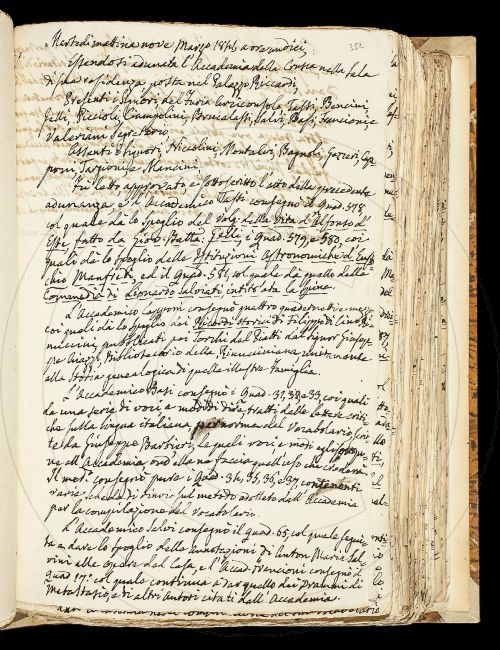 352
Martedì mattina nove Marzo 1841 a ore undici,
Essendosi adunata l'Accademia della Crusca nella sala
di sua residenza posta nel Palazzo Riccardi,
Presenti i Signori del Furia Arciconsolo, Tassi, Bencini,
Gelli, Piccioli, Ciampolini, Brucalassi, Salvi, Basi, Fruncioni, e
Valeriani Segretario.
Assenti i Signori, Niccolini, Montalvi, Bagnoli, Gazzeri, Cap
poni, Targioni e Mancini.
Fu letto, approvato e sottoscritto l'atto della precedente
adunanza, e l'Accademico Tassi consegnò il Quad. 578,
col quale dà lo spoglio del Volg. della Vita d'Alfonso d'
Este fatto da Giov. Batta: Gelli, i Quad. 579, e 580, coi
quali dà lo spoglio delle Istituzioni Astronomiche d'Eusta-
chio Manfredi, ed il Quad. 581, col quale dà quello della
Commedia di Leonardo Salviati, intitolata la Spina.
L'Accademico Capponi consegnò quattro quadernetti e mezzo
coi quali dà lo spoglio dai Ricordi Storici di Filippo di Cino Ri-
nuccini, pubblicati pei Torchi del Piatti dal Signor Giusep-
pe Aiazzi Bibliotecario della Rinucciniana unitamente
alla Storia genealogica di quella illustre Famiglia.
L'Accademico Basi consegnò i Quad. 32, e 33, coi quali
dà una serie di voci e modi di dire tratti dalle lettere criti-
che sulla lingua italiana per norma del Vocabolario scrit-
te da Giuseppe Barbieri, le quali voci, e modi
ne all'Accademia ond'ella ne faccia quell'uso che crederà.
Il med. consegnò pure i Quad. 34, 35, 36, e 37, contenenti
varie schede di sul metodo adottato dall'Accademia
per la compilazione del Vocabolario.
L'Accademico Salvi consegnò il Quad. 65, col quale segui-
ta a dare lo spoglio delle Annotazioni di Anton Maria Sal-
vini alle opere del Casa, e l'Accad. Fruncioni consegnò il
Quad. 17.° col quale continua a dar quello dei Drammi di
Metastasio, e di altri Autori citati dall'Accademia.